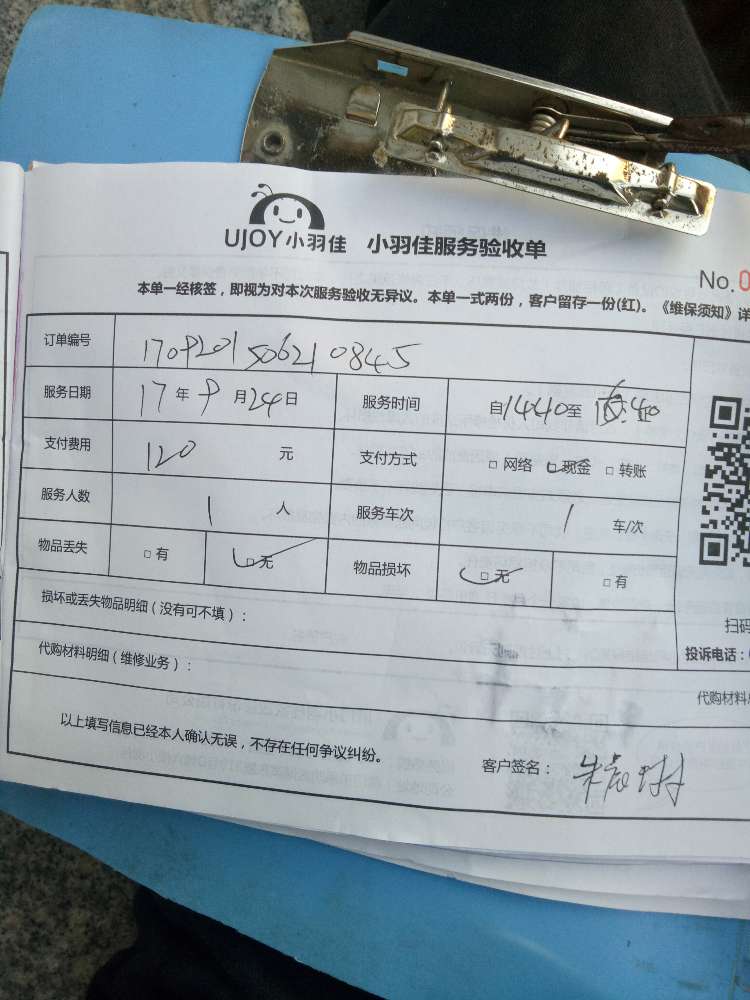 UJOY小羽佳 小羽佳服务验收单
No.0
本单一经核签，即视为对本次服务验收无异议。本单一式两份，客户留存一份(红)。《维保须知》详
订单编号 170920150621 0845
服务日期 17 年 9 月 24 日 服务时间 自 1440 至 16:40
支付费用 120 元 支付方式 □ 网络 □ 现金 □ 转账
服务人数 1 人 服务车次 1 车/次
物品丢失 □ 有 □ 无 物品损坏 □ 无 □ 有
损坏或丢失物品明细（没有可不填）：
扫码
投诉电话：
代购材料明细（维修业务）：
代购材料
以上填写信息已经本人确认无误，不存在任何争议纠纷。
客户签名： 朱